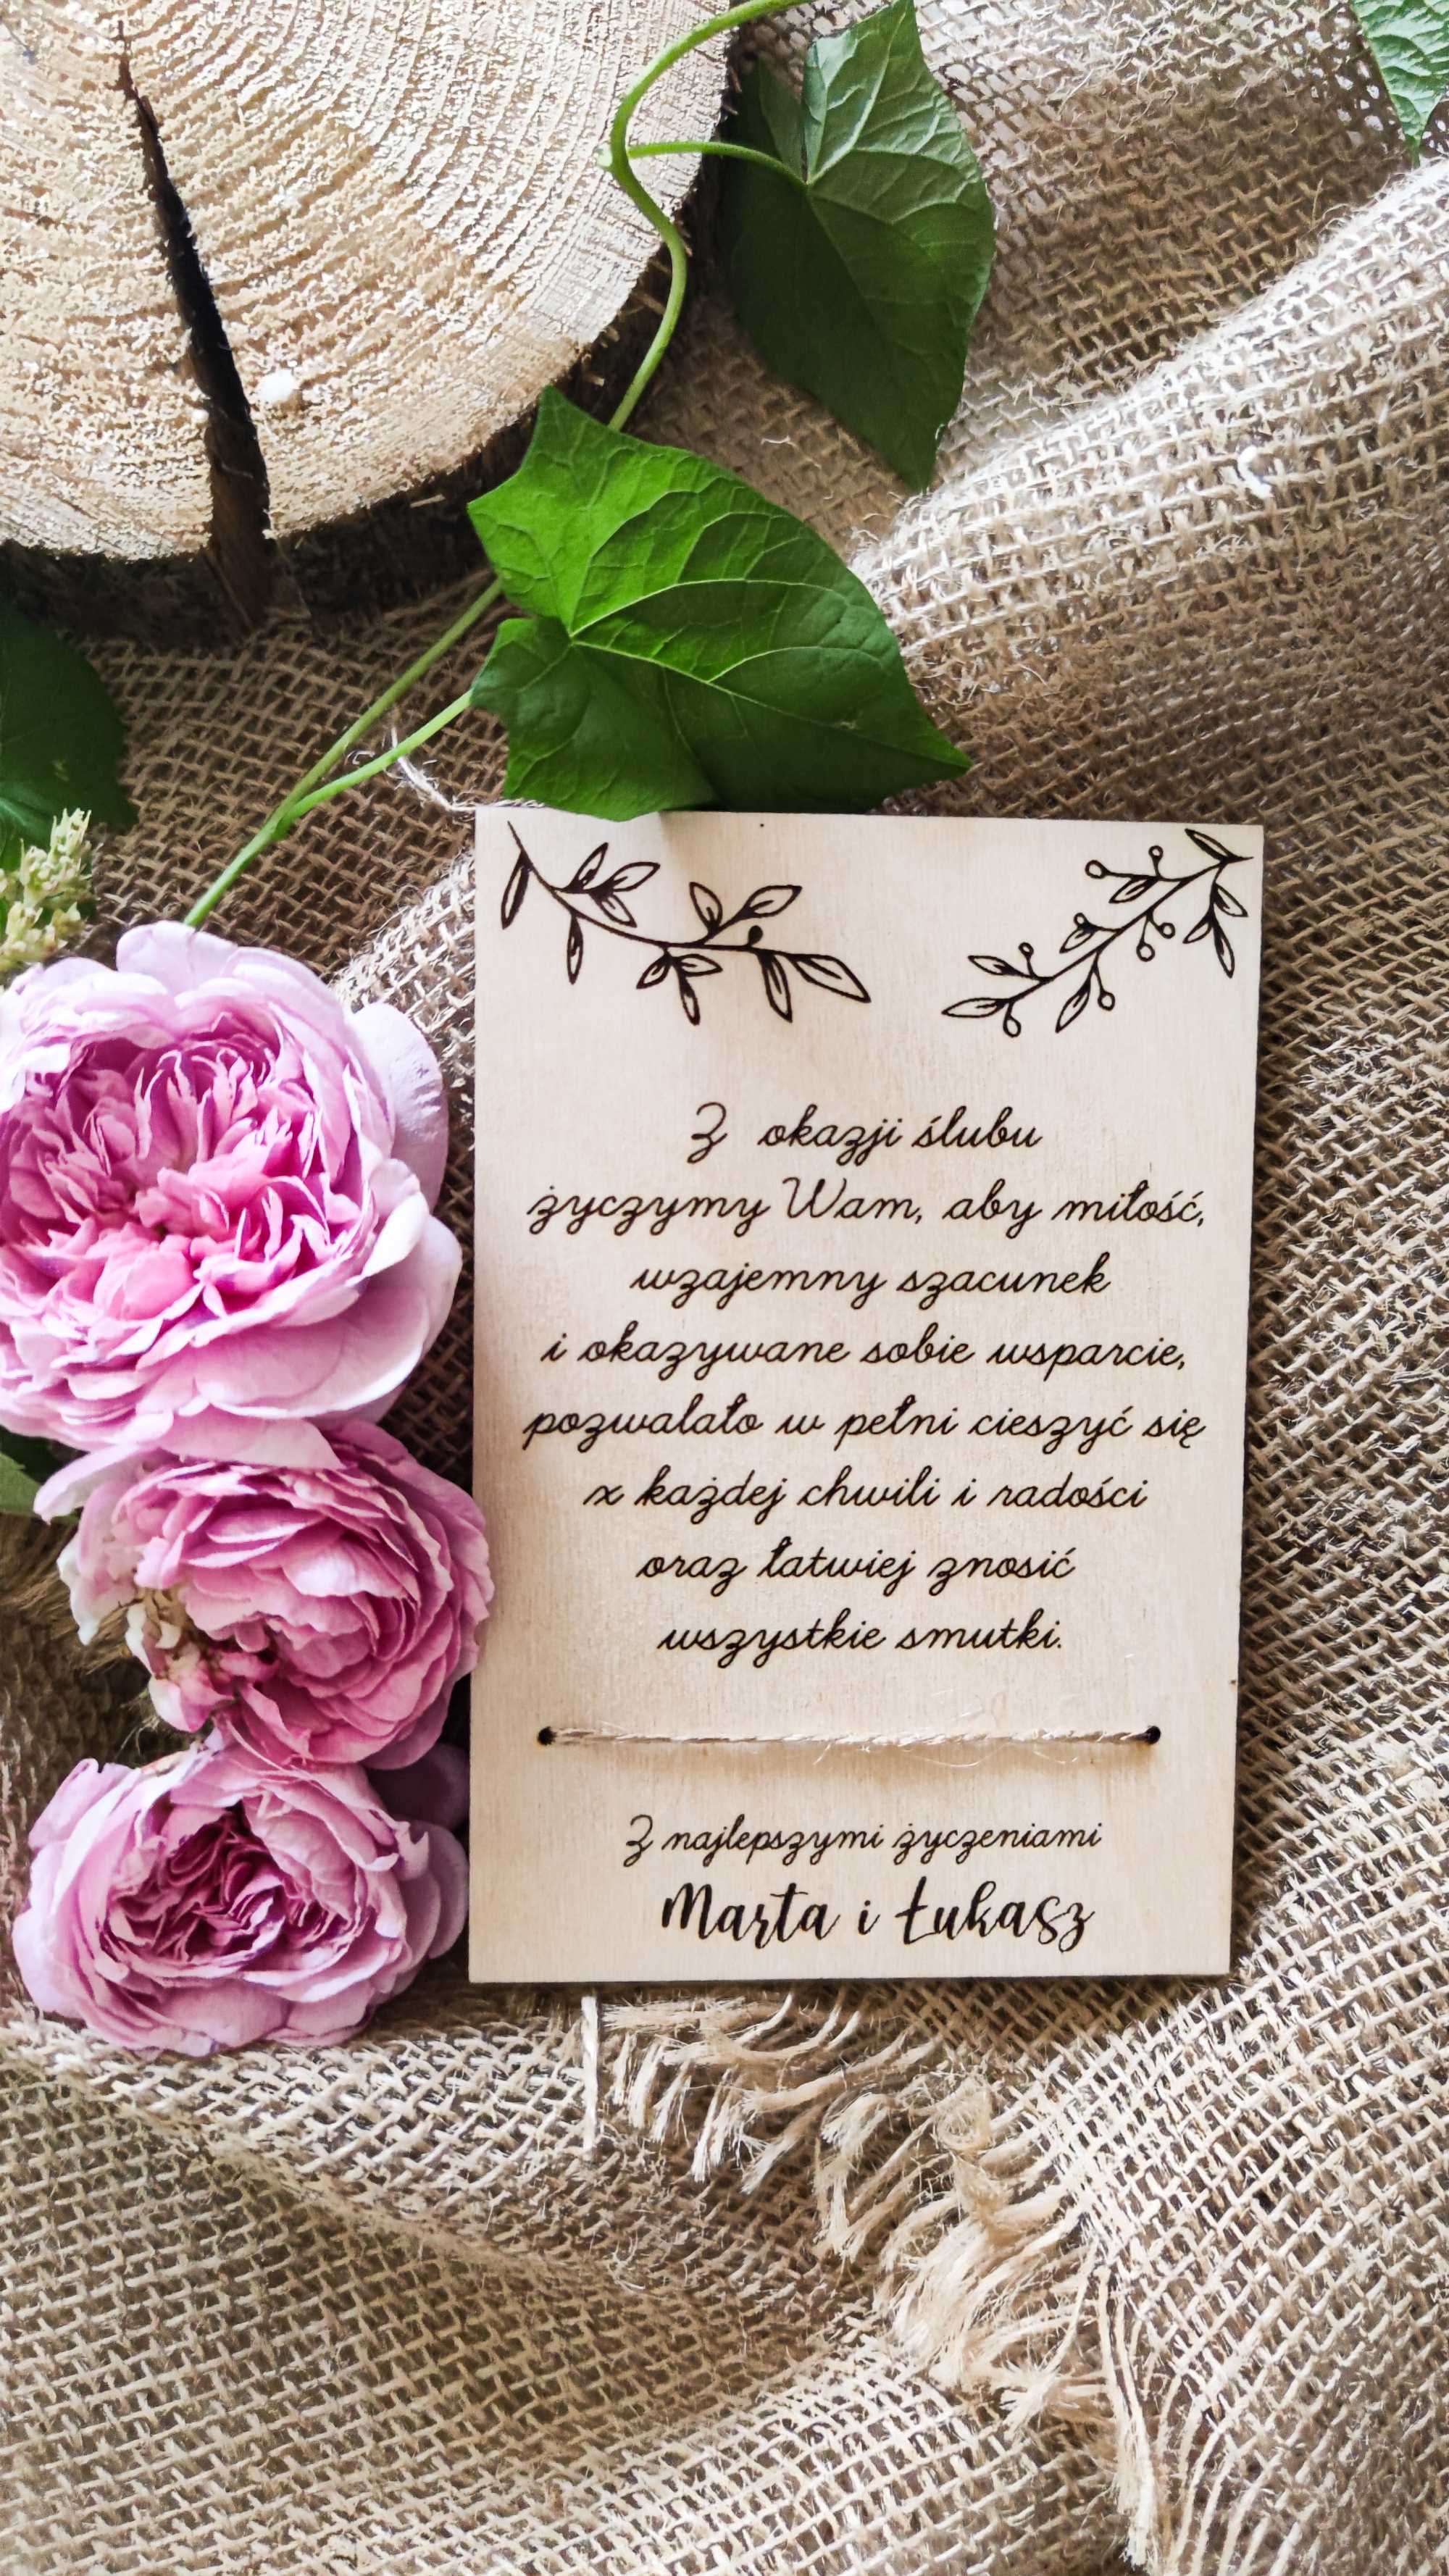 Z okazji ślubu
życzymy Wam, aby miłość,
wzajemny szacunek
i okazywane sobie wsparcie,
pozwalało w pełni cieszyć się
z każdej chwili i radości
oraz łatwiej znosić
wszystkie smutki.
Z najlepszymi życzeniami
Marta i Łukasz